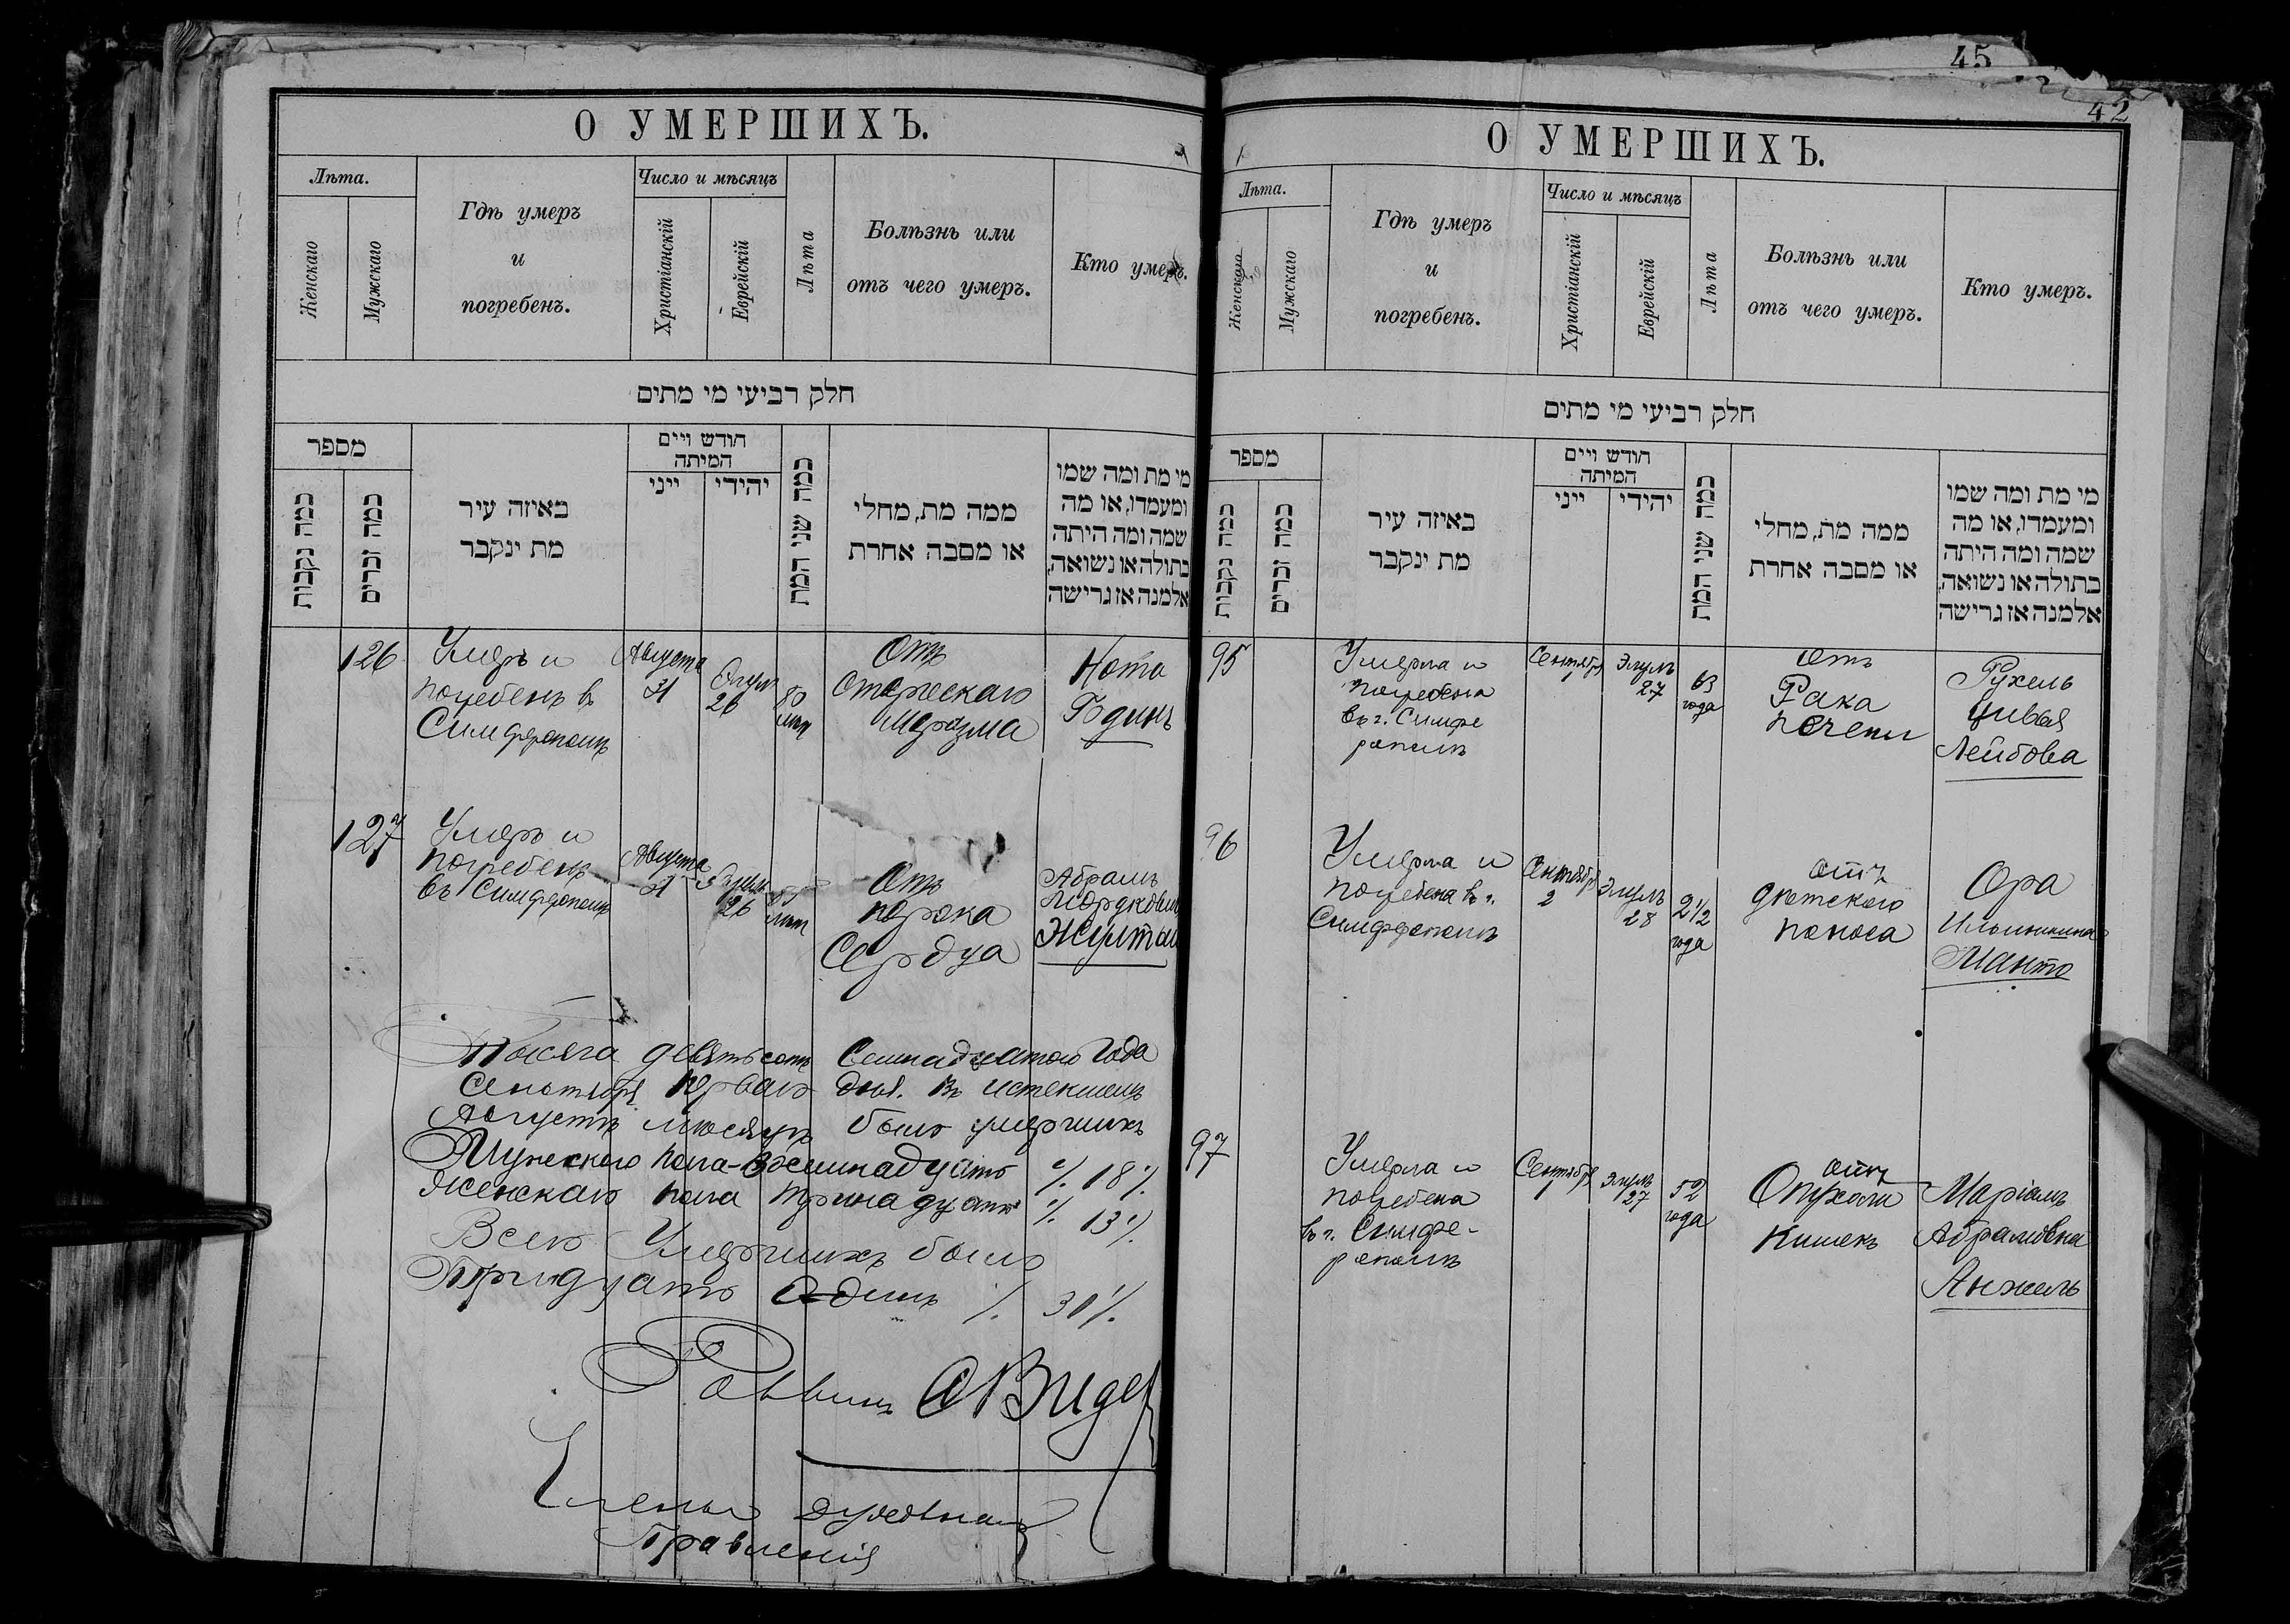 О УМЕРШИХЪ.
Лѣта.
Женскаго
Мужскаго
Гдѣ умеръ
и
погребенъ.
Число и мѣсяцъ
Христіанскій
Еврейскій
Лѣта
Болѣзнь или
отъ чего умеръ.
Кто умеръ.
חלק רביעי מי מתים
מספר
כמה נקבות
כמה זכרים
באיזה עיר
מת ינקבר
חודש ויים
המיתה
ייני
יהידי
כמה שני המת
ממה מת, מחלי
או מסבה אחרת
מי מת ומה שמו
ומעמדו, או מה
שמה ומה היתה
בתולה או נשואה,
אלמנה אז גרישה
126
Умеръ и
погребенъ въ
Симферополѣ
Августа
31
Элулъ
26
80
лѣт
Отъ
Старческаго
Маразма
Нота
Годинъ
127
Умеръ и
погребенъ
въ Симферополѣ
Августа
31
Элулъ
26
лѣт
Отъ
порока
Сердца
Абрамъ
Мордкович
Тысяча девятьсотъ Семнадцатого Года
Сентября перваго дня. Въ истекшемъ
Августѣ мѣсяцѣ было умершихъ
Мужского пола - Восемнадцать ./. 18 ./.
Женскаго пола тринадцать ./. 13 ./.
Всего Умершихъ было
Тридцать Одинъ ./. 31 ./.
Раввинъ
Члены духовнаго
Правленія
45
42
О УМЕРШИХЪ.
Лѣта.
Женскаго
Мужскаго
Гдѣ умеръ
и
погребенъ.
Число и мѣсяцъ
Христіанскій
Еврейскій
Лѣта
Болѣзнь или
отъ чего умеръ.
Кто умеръ.
חלק רביעי מי מתים
מספר
כמה נקבות
כמה זכרים
באיזה עיר
מת ינקבר
חודש ויים
המיתה
ייני
יהידי
כמה שני המת
ממה מת, מחלי
או מסבה אחרת
מי מת ומה שמו
ומעמדו, או מה
שמה ומה היתה
בתולה או נשואה,
אלמנה אז גרישה
95
Умерла и
погребена
въ г. Симфе
рополѣ
Сентябр
1
Элулъ
27
63
года
отъ
Рака
печени
Рухель
Цивья
Лейбова
96
Умерла и
погребена в г.
Симферополѣ
Сентябр
2
Элулъ
28
2 1/2
года
отъ
дѣтскаго
поноса
Ора
Манто
97
Умерла и
погребена
въ г. Симфе-
рополѣ
Сентябр
1
Элулъ
27
52
года
отъ
Опухоли
Кишекъ
Маріамъ
Абрамовна
Анжель